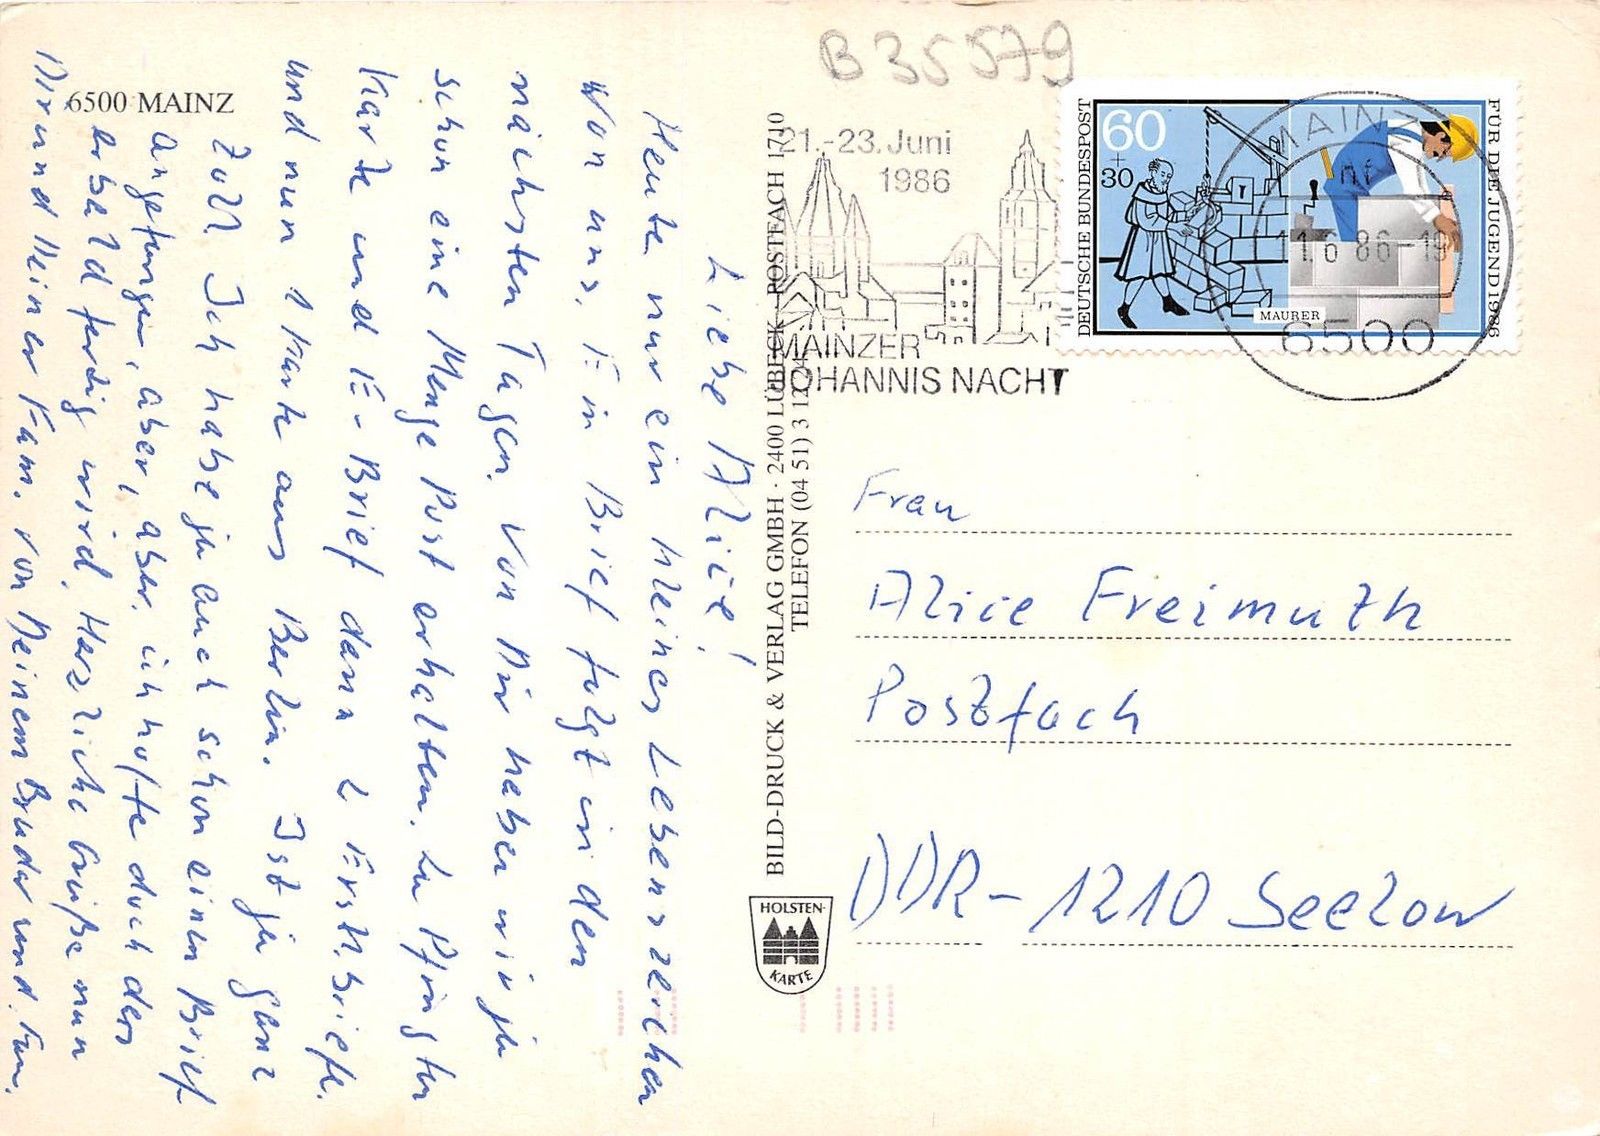 6500 MAINZ
Liebe Alice!
Heute nur ein kleines Lebenszeichen
von uns. Ein Brief folgt in den
nächsten Tagen. Von Dir haben wir ja
schon eine Menge Post erhalten. Zu Pfingsten
Karte und E-Brief dann 2 Erstt.briefe.
und nun 1 Karte aus Berlin. Ist ja ganz
toll. Ich habe ja auch schon einen Brief
angefangen, aber, aber, aber. ich hoffe doch der
er bald fertig wird. Herzliche Grüße nun
Dir und Deiner Fam. von Deinem Bruder und Fam.
BILD-DRUCK & VERLAG GMBH · 2400 LÜBECK · POSTFACH 1710
TELEFON (04 51) 3 12
HOLSTEN-
KARTE
B 35579
21.-23. Juni
1986
MAINZER
JOHANNIS NACHT
60
+
30
DEUTSCHE BUNDESPOST
FÜR DIE JUGEND 1986
MAURER
MAINZ
11.6.86-19
6500
Frau
Alice Freimuth
Postfach
DDR-1210 Seelow